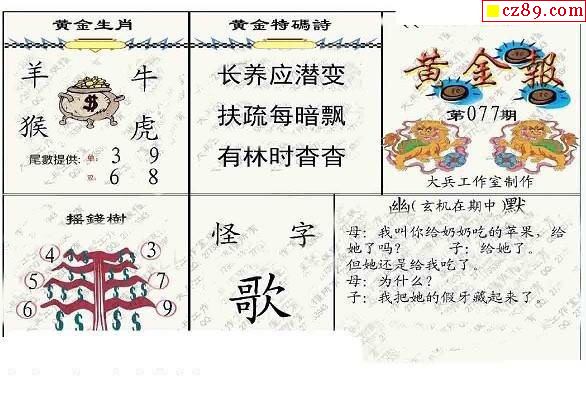 cz89.com
黄金生肖
羊 牛
猴 虎
尾數提供: 单: 3 9
双: 6 8
黄金特碼詩
长养应潜变
扶疏每暗飘
有林时杳杳
黄金報
第077期
大兵工作室制作
摇錢樹
4 3
5 7
6 9
怪 字
歌
幽(玄机在期中)默
母:我叫你给奶奶吃的苹果,给
她了吗? 子:给她了。
但她还是给我吃了。
母:为什么?
子:我把她的假牙藏起来了。